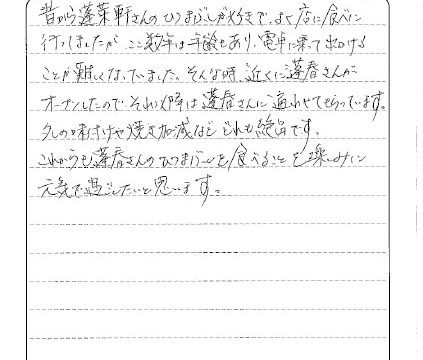 昔から蓬莱軒さんのひつまぶしが大好きで、よく店に食べに
行ってましたが、ここ数年は年齢もあり、電車に乗って出かける
ことが難しくなっていました。そんな時、近くに蓬春さんが
オープンしたので、それ以降は蓬春さんに通わせてもらっています。
タレの味付けや焼き加減など どれも絶品です。
これからも蓬春さんのひつまぶしを食べることを楽しみに
元気で過ごしたいと思います。